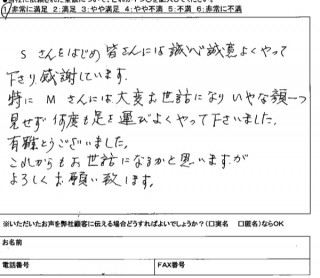 1:非常に満足 2:満足 3:やや満足 4:やや不満 5:不満 6:非常に不満
Sさんをはじめ皆さんには誠心誠意よくやって
下さり感謝しています。
特にMさんには大変お世話になりいやな顔一つ
見せず何度も足を運びよくやって下さいました。
有難とうございました。
これからもお世話になるかと思いますが
よろしくお願い致します。
※いただいたお声を弊社顧客に伝える場合どうすればよいでしょうか?(□実名 □匿名)ならOK
お名前
電話番号
FAX番号